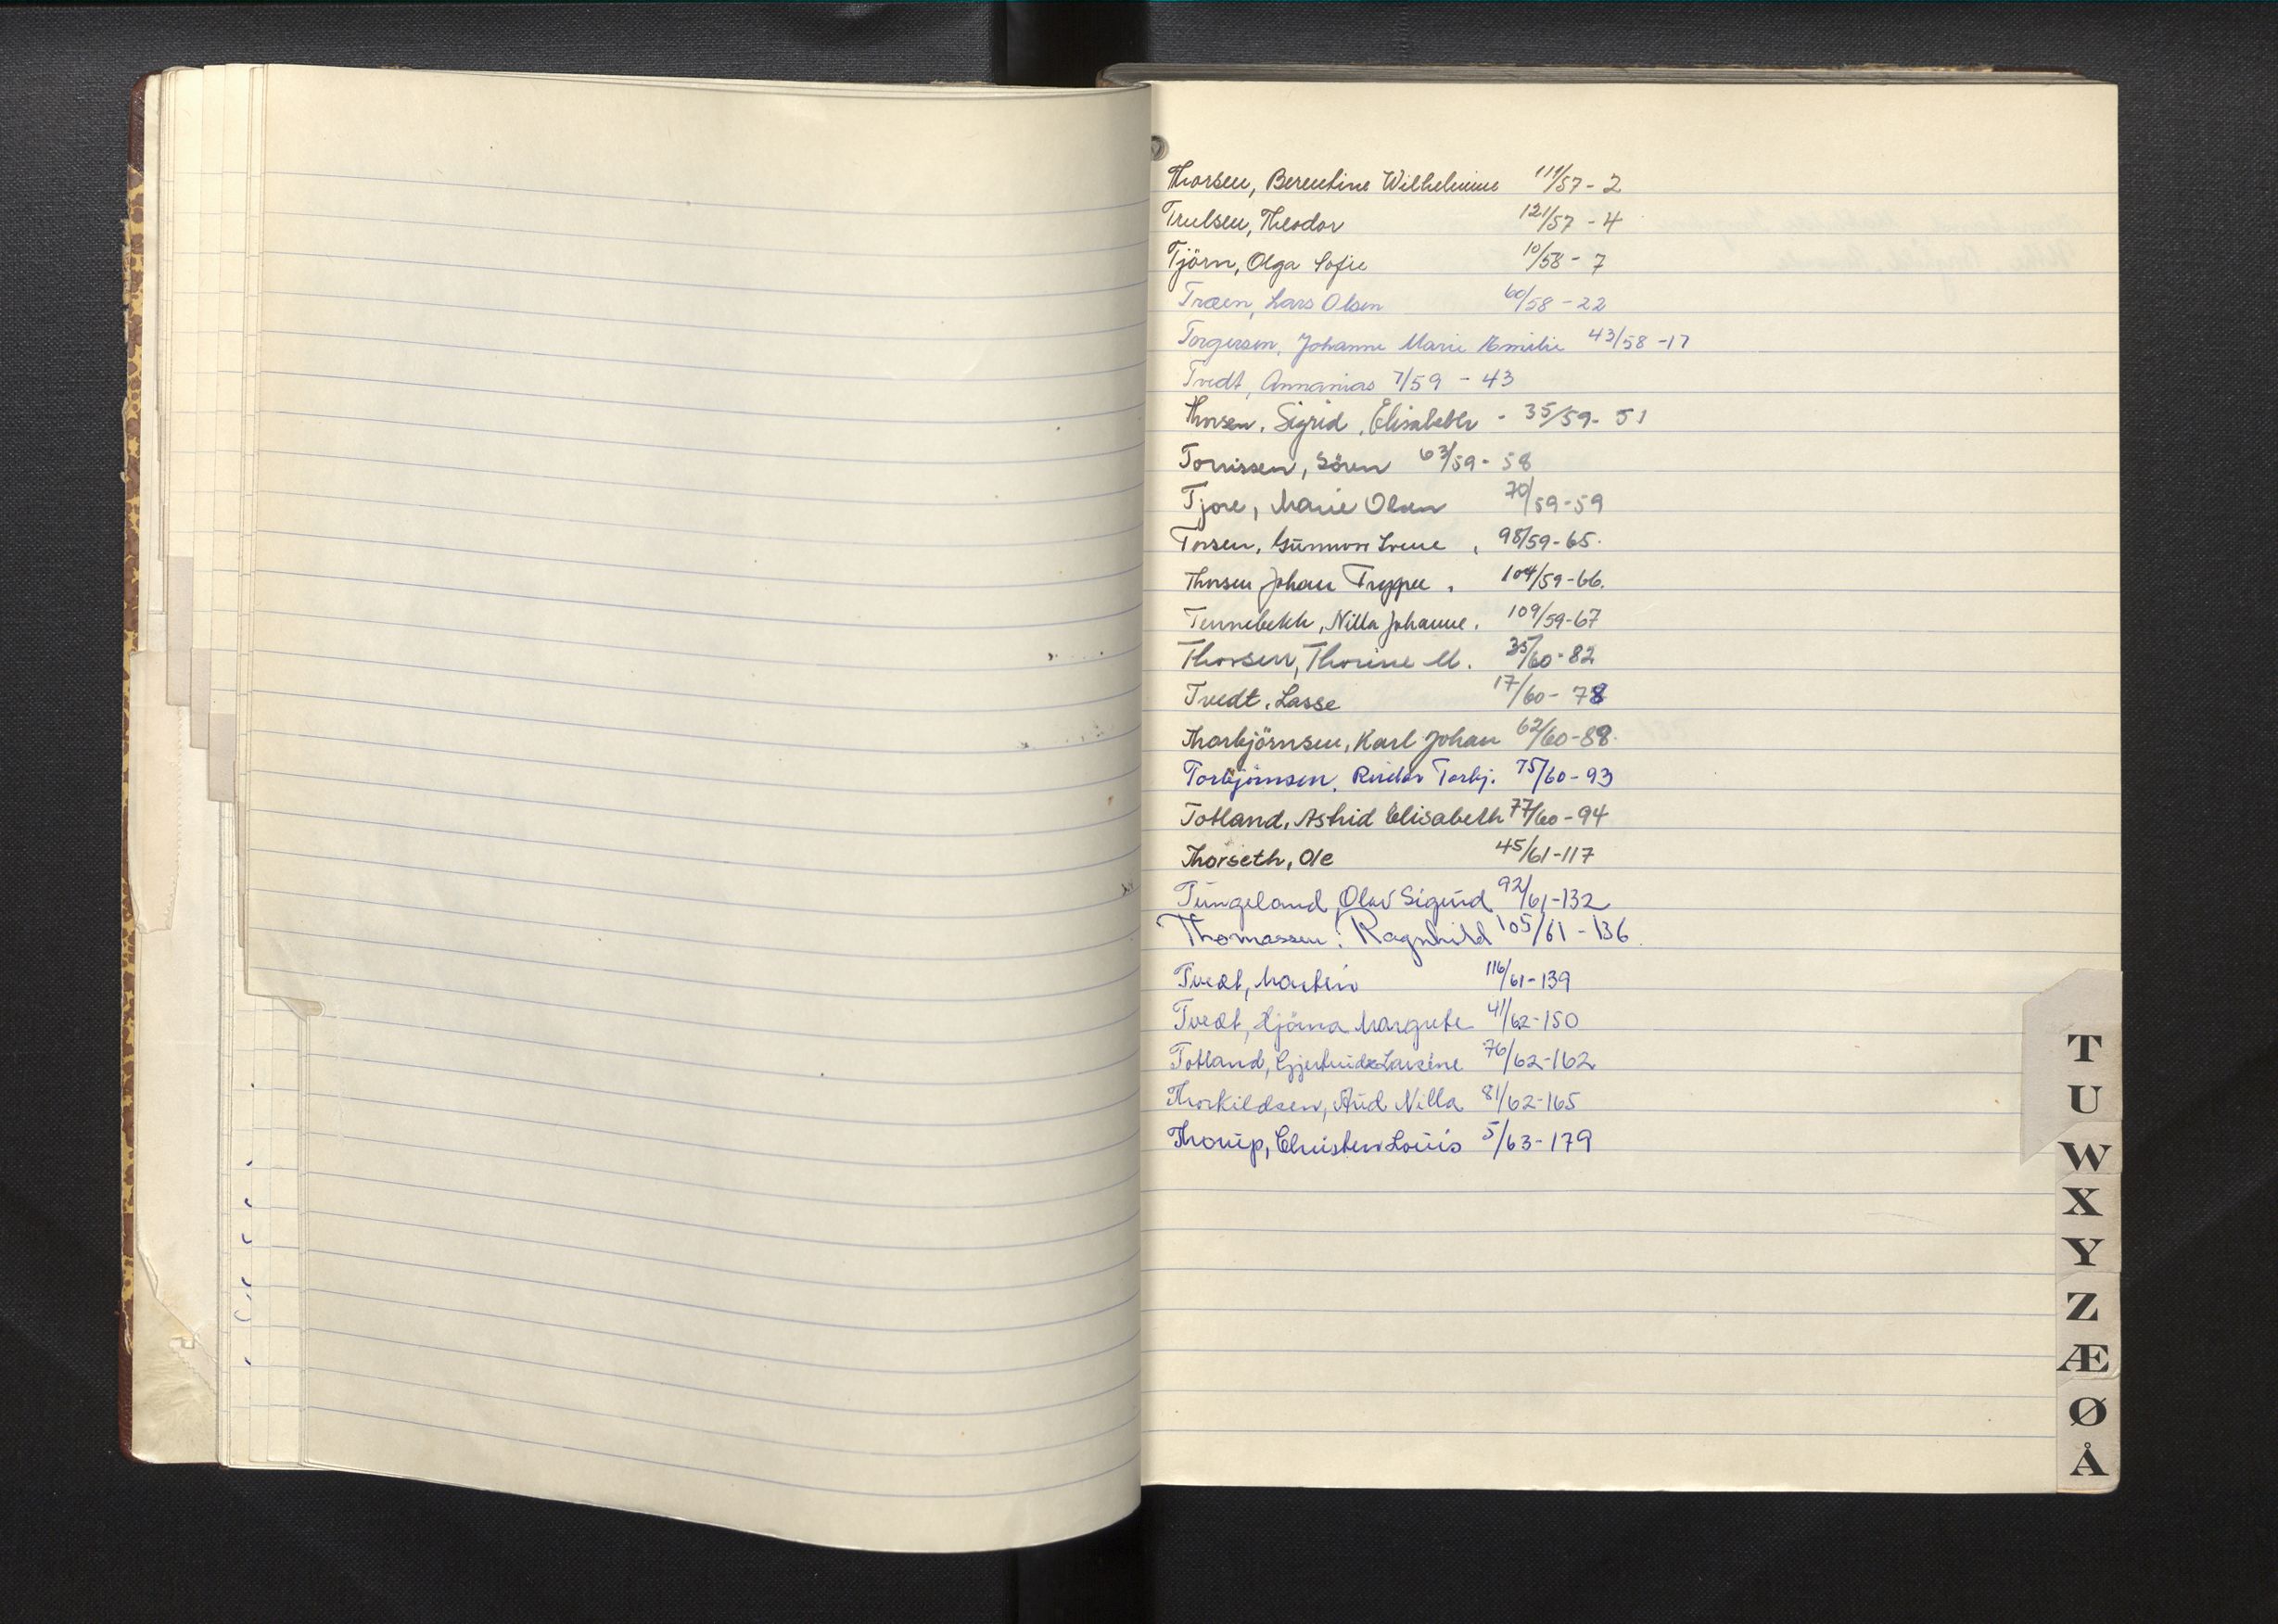 Thorsen, Berentine Wilhelmine 111/57 - 2
Trulsen, Theodor 121/57 - 4
Tjörn, Olga Sofie 10/58 - 7
Træen, Lars Olsen 60/58 - 22
Torgersen, Johanne Marie Emilie 43/58 - 17
Tvedt, Annanias 7/59 - 43
Thorsen, Sigrid, Elisabeth - 35/59 - 51
Torrissen, Sören 63/59 - 58
Tjore, Marie Olsen 70/59 - 59
Torsen, Gunnvor 98/59 - 65.
Thorsen Johan Trygve. 104/59 - 66.
Tennebekk, Nilla Johanne. 109/59 - 67
Thorsen, Thorine M. 35/60 - 82
Tvedt, Lasse 17/60 - 78
Thorbjörnsen, Karl Johan 62/60 - 88.
Torbjörnsen, Torbj. 75/60 - 93
Totland, Astrid Elisabeth 77/60 - 94
Thorseth, Ole 45/61 - 117
Tungeland, Olav Sigurd 92/61 - 132
Thomassen, Ragnhild 105/61 - 136.
Tvedt, Martin 116/61 - 139
Tvedt, Margrete 41/62 - 150
Totland, Gjertrud Lavine 76/62 - 162
Thorkildsen, Aud Nilla 81/62 - 165
Thorup, Christen Louis 5/63 - 179
T
U
W
X
Y
Z
Æ
Ø
Å